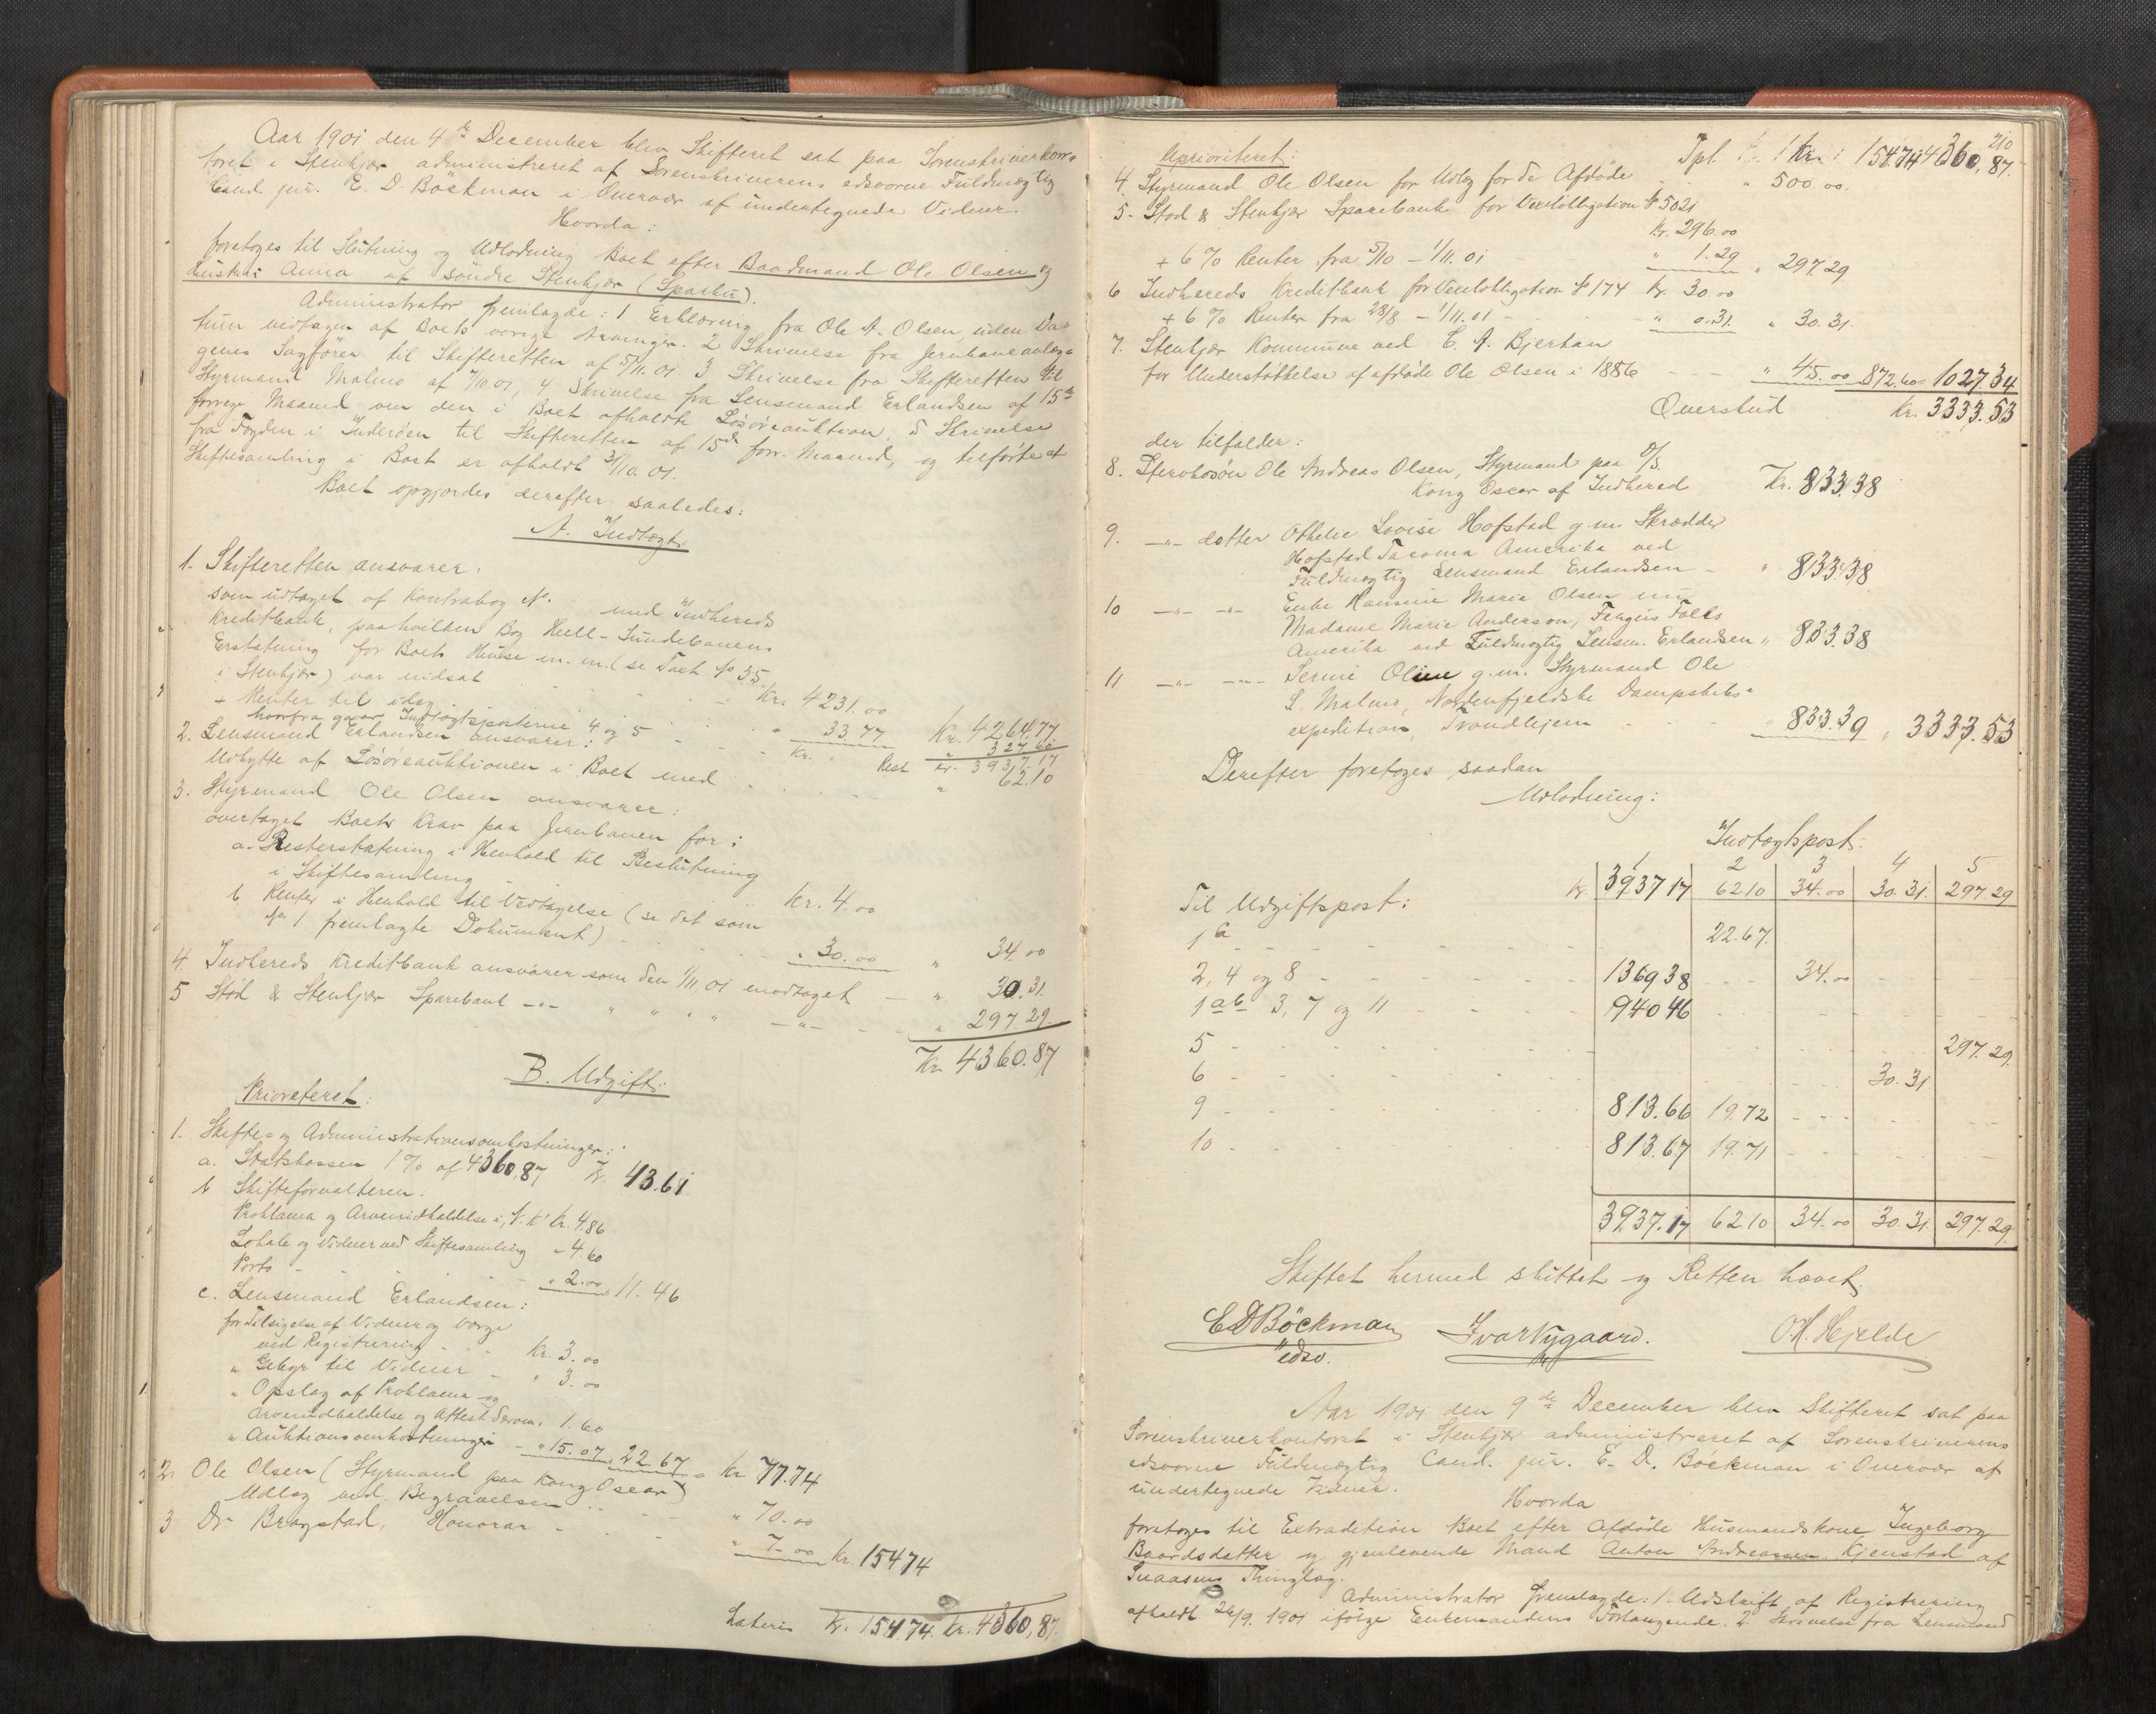 Aar 1901 den 4de December blev Skifteret sat paa Sorenskriverkon-
toret i Stenkjær administreret af Sorenskriverens edsvorne Fuldmægtig
Cand jur. E. D. Böckman i Overvær af undertegnede Vidner.
Hvorda:
foretoges til Slutning og Udlodning Boet efter Baadmand Ole Olsen og
Hustru Anna af söndre Stenkjær (Sparbu).
Administrator fremlagde: 1 Erklæring fra Ole A. Olsen, uden Da-
tum vedtagen af Boets övrige Arvinger. 2 Skrivelse fra Jernbaneanlæg-
genes Sagförer til Skifteretten af 5/11.01. 3 Skrivelse fra Skifteretten til
Styrmand Malmo af 7/10.01, 4 Skrivelse fra Lensmand Erlandsen af 15de
forrige Maaned om den i Boet afholdte Lösöreauktion, 5 Skrivelse
fra Fogden i Inderöen til Skifteretten af 15de forr. Maaned, og tilförte at
Skiftesamling i Boet er afholdt 31/10.01.
Boet opgjordes derefter saaledes:
A. Indtægt:
1. Skifteretten ansvarer:
som udtaget af Kontrabog No. med Indhereds
Kreditbank, paa hvilken Bog Hell-Sundebanens
Erstatning for Boets Huse m. m. (se Taxt No 35
i Stenkjær) var indsat Kr. 4231.00
+ Renter til idag " 33 77 Kr. 4264.77.
hvorfra gaar Indtægtsposterne 4 og 5 327.60
Kr. Rest kr. 3937.17
2. Lensmand Erlandsen ansvarer:
Udbytte af Lösöreauktionen i Boet med " 62.10
3. Styrmand Ole Olsen ansvarer:
overtaget Boets Krav paa Jernbanen for:
a. Resterstatning i Henhold til Beslutning
i Skiftesamling Kr. 4.00
b Renter i Henhold til Vedtagelse (se det som
No 1 fremlagte Dokument) " 30.00 " 34.00
4. Indhereds Kreditbank ansvarer som den 1/11.01 modtaget " 30.31.
5 Stod & Stenkjær Sparebank -"- " " " " -"- " 297 29.
Kr. 4360.87
B. Udgift:
Prioriteret:
1. Skifte- og Administrationsomkostninger:
a. Statskassen 1 % af 4360.87 Kr. 43.61
b Skifteforvalteren.
Proklama og Arveindkaldelse i N. K. Kr. 4.86
Lokale og Vidner ved Skiftesamling " 4.60
Porto " 2.00 " 11.46
c. Lensmand Erlandsen:
for Tilsigelse af Vidner og Værge
ved Registrering Kr. 3.00
" Gebyr til Vidner " 3.00
" Opslag af Proklama og
Arveindkaldelse og Attest derom. 1.60
" Auktionsomkostninger " 15.07 " 22.67 = Kr 77.74
2 Ole Olsen (Styrmand paa Kong Oscar)
Udlæg ved Begravelsen " 70.00
3 Dr Bragstad, Honorar " 7.00 Kr. 154 74
Lateris Kr. 154 74. kr. 4360,87.
210
Tpt Kr. 154.74 4360,87.
Uprioriteret:
4. Styrmand Ole Olsen for Udlæg for de Afdöde " 500.00.
5. Stod & Stenkjær Sparebank for Vexelobligation No 5021
Kr. 296.00
+ 6 % Renter fra 5/10 - 1/11.01 " 1.29 " 297 29
6 Indhereds Kreditbank for Vexelobligation No 174 Kr. 30.00
+ 6 % Renter fra 28/8 - 1/11.01 - " 0.31. " 30.31.
7. Stenkjær Kommune ved E. A. Bjertan
for Understöttelse af afdöde Ole Olsen i 1886 - - - " 45.00 872.60 = 1027.34
Overskud Kr. 3333.53
der tilfalder:
8. Sterobosön Ole Andreas Olsen, Styrmand paa D/S.
Kong Oscar af Indhered Kr. 833.38
9. -"- datter Othelie Lovise Hofstad g.m. Skrædder
Hofstad Tacoma Amerika ved
Fuldmægtig Lensmand Erlandsen - " 833.38
10 -"- -"- Enke Hansine Marie Olsen nu
Madame Marie Anderson, Fergus Falls
Amerika ved Fuldmægtig Lensm. Erlandsen " 833.38
11 -"- -"- Serine Oline g.m. Styrmand Ole
L. Malmo, Nordenfjeldske Dampskibs-
expedition, Trondhjem " 833.39 " 3333.53
Derefter foretoges saadan
Udlodning:
Indtægtspost:
1 2 3 4 5
Til Udgiftspost: kr. 3937 17 62 10 34.00 30.31. 297.29
1c - - - 22.67.
2, 4 og 8 - 1369 38 - - 34.00 - -
1ab 3, 7 og 11 - 940 46
5 - - - 297.29.
6 - - - 30.31.
9 - - - 813.66 19.72 - - -
10 - - - 813.67 19.71 - -
3937.17 62 10 34.00 30.31. 297.29.
Skiftet hermed sluttet og Retten hævet.
E D Böckman Ivar Nygaard. O. A. Hjelde
edsv.
Aar 1901 den 9de December blev Skifteret sat paa
Sorenskriverkontoret i Stenkjær administreret af Sorenskriverens
edsvorne Fuldmægtig Cand. jur. E. D. Böckman i Overvær af
undertegnede Vidner.
Hvorda
foretoges til Extradition Boet efter afdöde Husmandskone Ingeborg
Baardsdatter og gjenlevende Mand Anton Andreassen Kjenstad af
Snaasens Thinglag.
Administrator fremlagde: 1. Udskrift af Registrering
afholdt 26/9. 1901 ifölge Enkemandens Forlangende. 2. Skrivelse fra Lensmand